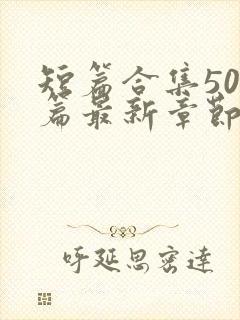 短篇合集50
篇最新章節
呼延思密達